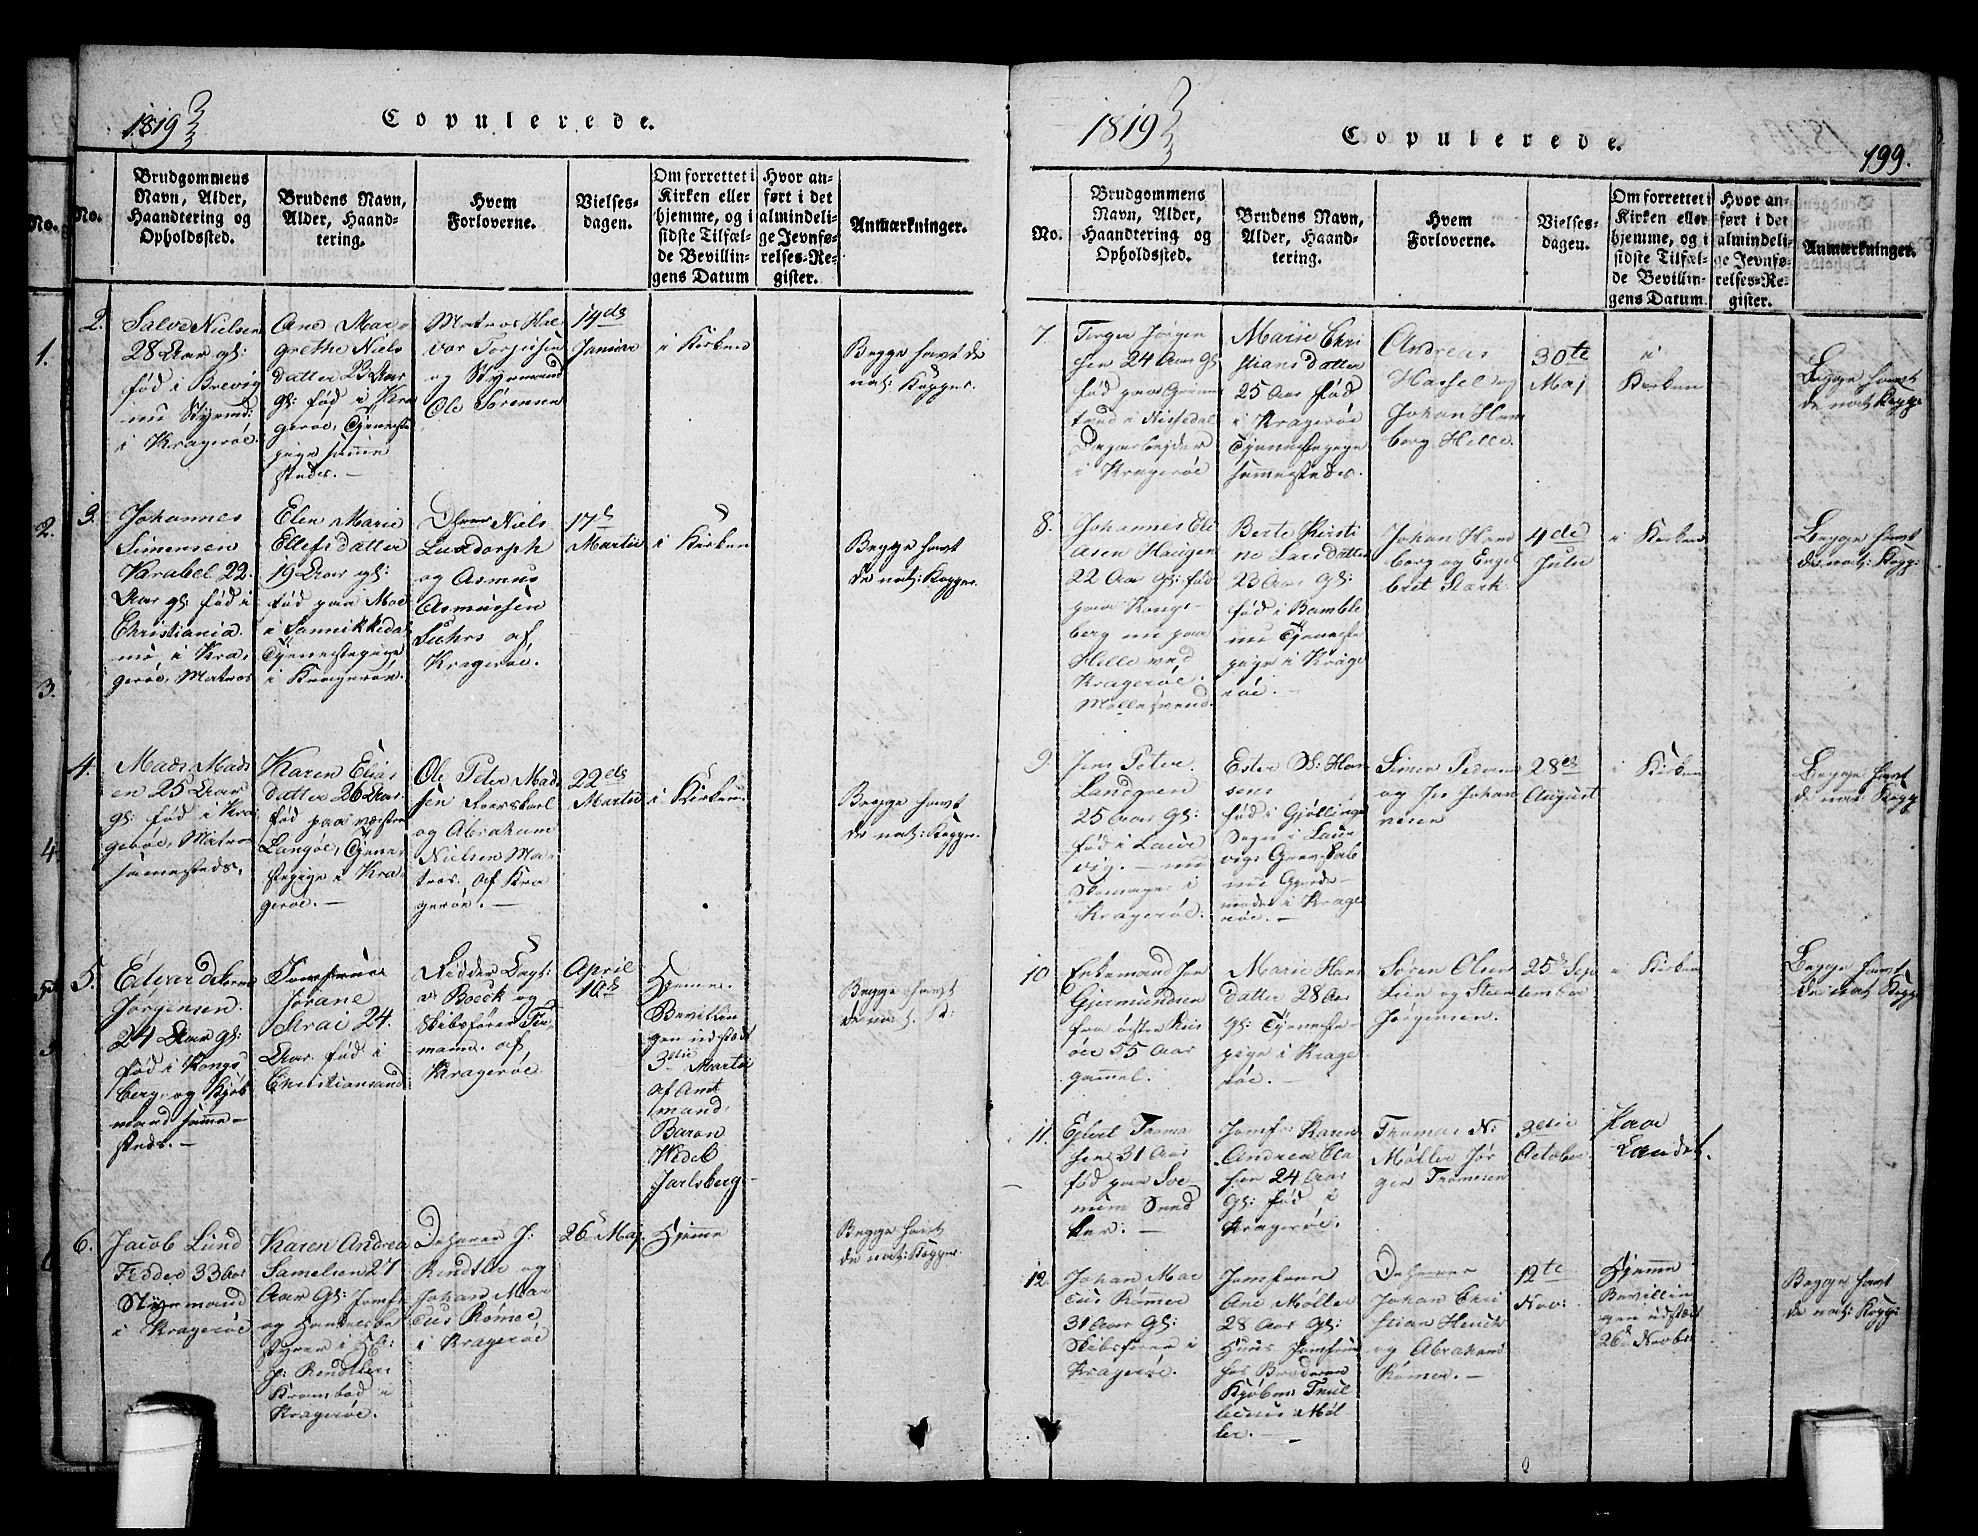 1819
Copulerede.
No.
Brudgommens
Navn, Alder,
Haandtering og
Opholdssted.
Brudens Navn,
Alder, Haand-
tering.
Hvem
Forloverne.
Vielses-
dagen.
Om forrettet i
Kirken eller
hjemme, og i
sidste Tilfæl-
de Bevillin-
gens Datum
Hvor an-
ført i det
almindeli-
ge Jevnfø-
relses-Re-
gister.
Anmærkninger.
2.
Salve Nielsen
28 Aar gl:
fød i Brevig
nu Styrmd:
i Kragerøe.
Ane Mar-
grethe Niels
datter 23 Aar
gl: fød i Kra
gerøe, Tjeneste
pige samme
steds. —
Matros Hal-
vor Terjesen
og Styrmand
Ole Sørensen
14de
Januar
i Kirken
Begge havt de
nat: Kopper.
3.
Johannes
Simonsen
Karabel 22
Aar gl: fød i
Christiania
nu i Kra,
gerøe, Matros
Elen Marie
Ellefsdatter
19 Aar gl:
fød paa Moe
i Sannikkedal
Tjenestepige
i Kragerøe.
Dhrrer Niels
Luxdorph
og Asmus
Asmussen
Luhrs af
Kragerøe.
17d
Martii
i Kirken
Begge havt
de nat: Kopper.
4.
Mads Mads
en 25 Aar
gl: fød i Kra
gerøe, Matros
sammesteds.
Karen Elias
datter 26 Aar
fød paa vestre
Langøe, Tjene-
stepige i Kra
gerøe. —
Ole Peter Mad
sen
og Abraham
Nielsen Ma-
tros. af Kra
gerøe. —
22de
Martii
i Kirken
Begge havt
de nat: Kopper.
5.
Edvard
Jørgensen.
24 Aar gl:
fød i Kongs
berg, og Kjøb
mand samme-
steds. —
Jomfrue
Jorane
Krai 24.
Aar fød i
Christiansand
Ridder
v Boeck og
Skibsfører
af
Kragerøe
April
10de
Hjeme.
Bevillin
gen udstædt
3die Martii
af Amt
mand
Baron
Wedel
Jarlsberg —
Begge havt
de nat. K:
6.
Jacob Lund
33 Aar
Styrmand
i Kragerøe
Karen Andrea
Samelsen 27
Aar gl: Jomfr
og
styrer i
J: Rendtlers
Krambod i
Kragerøe.
De herrer J:
Rendtler og
Johan Mar
cus Rømer
i Kragerøe
26 Maj.
Hjemme
Begge havt
de nat: Kopper.
1819
Copulerede.
199.
No.
Brudgommens
Navn, Alder,
Haandtering og
Opholdssted.
Brudens Navn,
Alder, Haand-
tering.
Hvem
Forloverne.
Vielses-
dagen.
Om forrettet i
Kirken eller
hjemme, og i
sidste Tilfæl-
de Bevillin-
gens Datum.
Hvor an-
ført i det
almindeli-
ge Jevnfø-
relses-Re-
gister.
Anmærkninger.
7
Terger Jørgen
sen 24 Aar gl
fød paa
i Nissedal
Dagarbejder
i Kragerøe
Marie Chri
stiansdatter
25 Aar fød
i Kragerøe
Tjenestepige
sammesteds.
Andreas
Hassel og
Johan Ham
borg Helle.
30te
Maj
i
Kirken
Begge havt
de nat: Kopp:
8.
Johannes Eli
asen Haugen
22 Aar gl: fød
paa Kongs-
berg nu paa
Helle ved
Kragerøe.
Møllesvend.
Berte Kirsti
ne Larsdatter
23 Aar gl:
fød i Bamble
nu Tjeneste
pige i Krage
røe. —
Johan Ham
borg og Engel
bret Stark
4de
Julii
i Kirken
Begge havt
de nat: Kopp:
9
Jens Peter
Landgren
25 Aar gl:
fød i Laur
vig. — nu
Skomager i
Kragerøe.
Ester S: Han
sens
fød i Gjøllings
Sogn i Laur
vigs Grevskab
nu Gjorde-
moder i Krage
røe. —
Simen Pedersen
og Jes Johan
28de
August
i Kirken
Begge havt
de nat: Kopp
10
Enkemand Jens
Gjermundsen
fra østre Kirs
øen 55 Aar
gammel.
Marie Hans
datter 28 Aar
gl: Tjeneste-
pige i Krage
røe. —
Søren Olsen
Lien og Steen
Jørgensen.
25de Sep
tember
i Kirken
Begge havt
de nat Kopp
11.
Ejlert Troma
sen 31 Aar
fød paa
Jomfr: Karen
Andrea Cla
sen 24 Aar
gl: fød i
Kragerøe.
Thomas N:
Møller Jør
gen Thomesen
3die
October
Paa
Landet.
12.
Johan Mar
cus Rømer
31 Aar gl:
Skibsfører i
Kragerøe.
Jomfrue
Ane Møller
28 Aar gl:
Huus Jomfrue
hos Broderen
Kjøbm: Thul
lenius Møl
ler. —
De herrer
Johan Chri
stian Heuch
og Abraham
Rømer. —
12te
Nov:
Hjemme
Bevillin
gen udstædt
26de Novbr
Begge havt
de nat: Kopp:
No.
1.
2.
3.
4.
5.